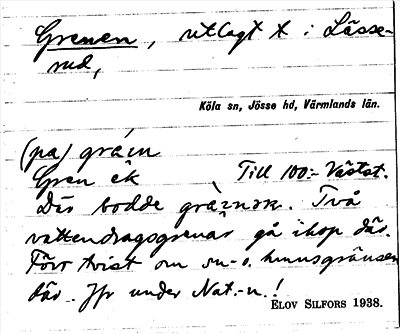 Grenen, utlagt t i Lässe-
rud,
Köla sn, Jösse hd, Värmlands län.
(pa) grèın
Gren ek Till 100:- Västst.
Där bodde Två
vattendragsgrenar gå ihop där.
Förr tvist om sn- o. hmnsgränsen
där. Jfr under Nat.-n.!
ELOV SILFORS 1938.